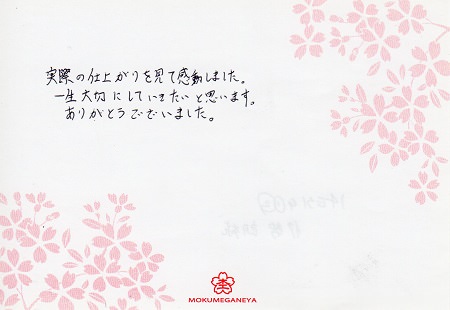 実際の仕上がりを見て感動しました。
一生大切にしていきたいと思います。
ありがとうございました。
MOKUMEGANEYA